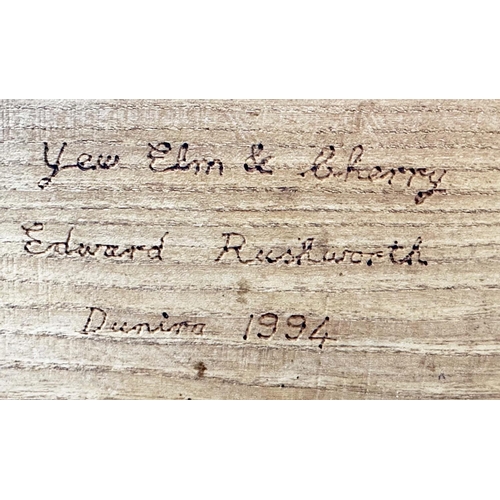 Yew Elm & Cherry
Edward Rushworth
Dunira 1994